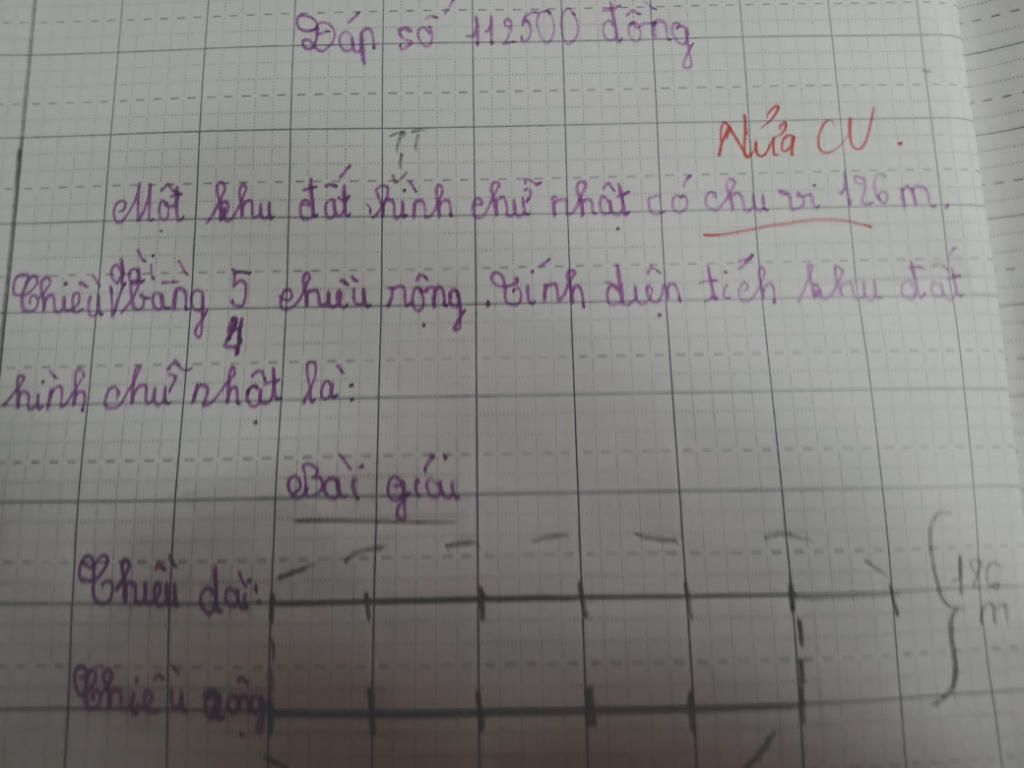 Đáp số 112500 đồng
Nửa CV.
Một khu đất hình chữ nhật có chu vi 126 m.
Chiều dài bằng 5/4 chiều rộng. Tính diện tích khu đất
hình chữ nhật là:
Bài giải
Chiều dài:
126 m
Chiều rộng